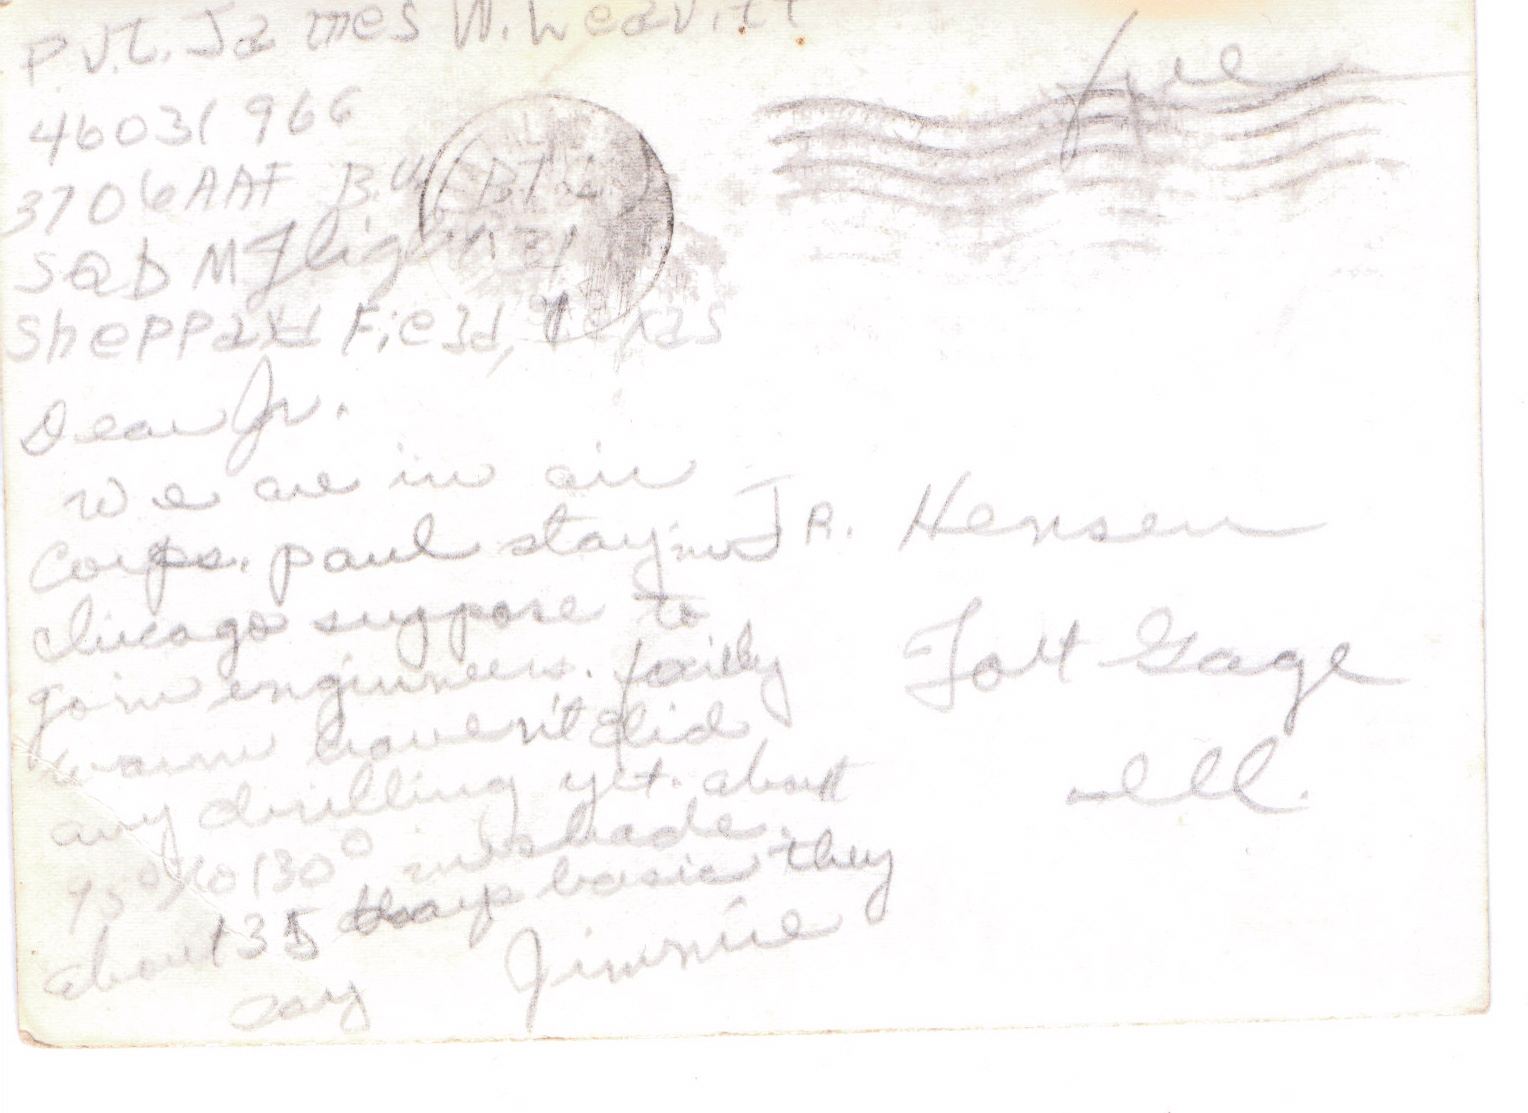 Pvt. James W. Leavitt
46031966
3706 AAF B.U. B.T.C.
SQD M Flight 31
Sheppard Field, Texas
free
Dear Jr.
We are in air
Corps. paul stay in
Chicago suppose to
join engineers. fairly
warm haven't did
any drilling yet. about
to 130° in shade.
about 35 days basic they
say Jimmie
JR. Hensen
Fort Gage
Ill.